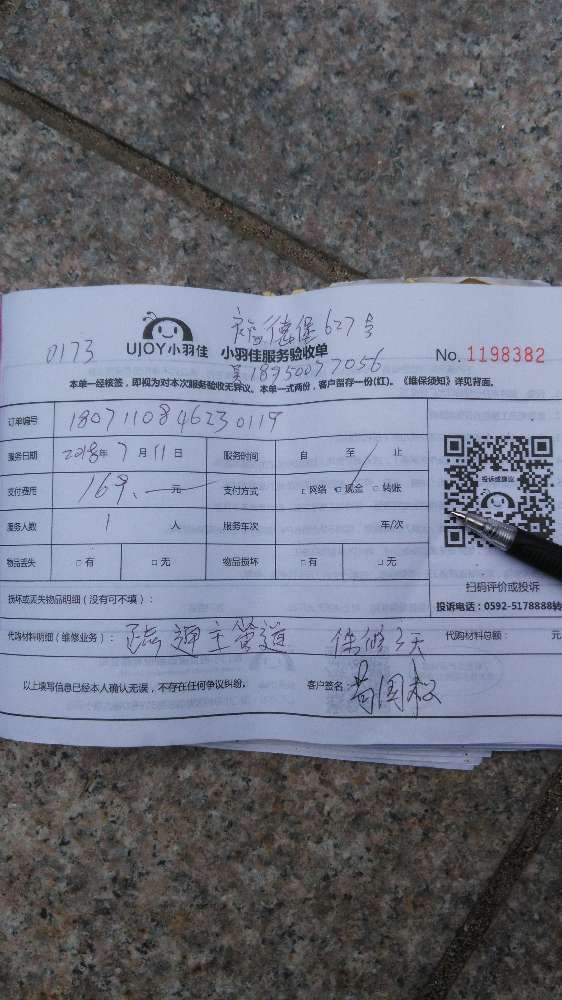 德堡627号
0173 UJOY小羽佳 小羽佳服务验收单 No. 1198382
18950077056
本单一经核签，即视为对本次服务验收无异议。本单一式两份，客户留存一份(红)。《维保须知》详见背面。
订单编号 1807110846230119
服务日期 2018年 7 月 11 日 服务时间 自 至 止
支付费用 169. 元 支付方式 □网络 □现金 □转账
服务人数 1 人 服务车次 车/次
物品丢失 □有 □无 物品损坏 □有 □无
投诉或建议
扫码评价或投诉
损坏或丢失物品明细（没有可不填）： 投诉电话：0592-5178888转
代购材料明细（维修业务）： 疏通主管道 保修3天 代购材料总额： 元
以上填写信息已经本人确认无误，不存在任何争议纠纷。 客户签名：